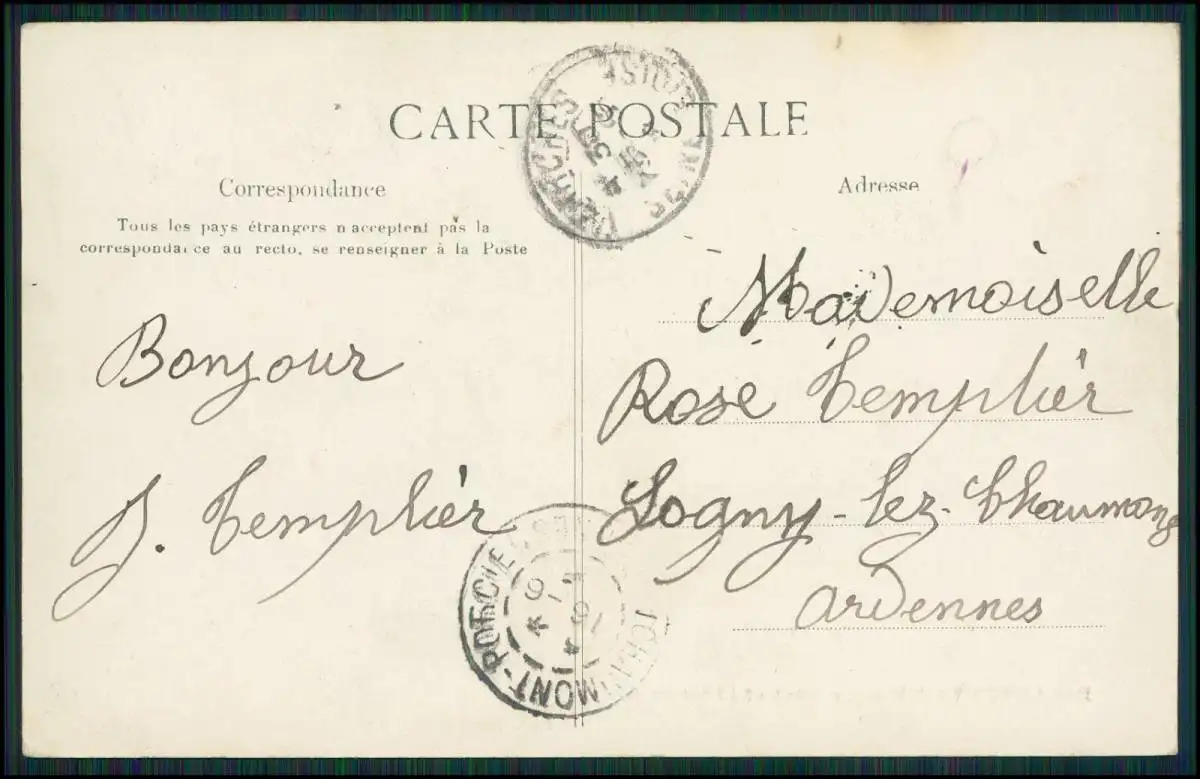 CARTE POSTALE
Correspondance
Tous les pays étrangers n'acceptent pas la
correspondance au recto, se renseigner à la Poste
Adresse
Bonjour
J. Templier
Mademoiselle
Rose Templier
Logny-lez-Chaumont
Ardennes
SEINE-ET-OISE
MONT-PORCIEN